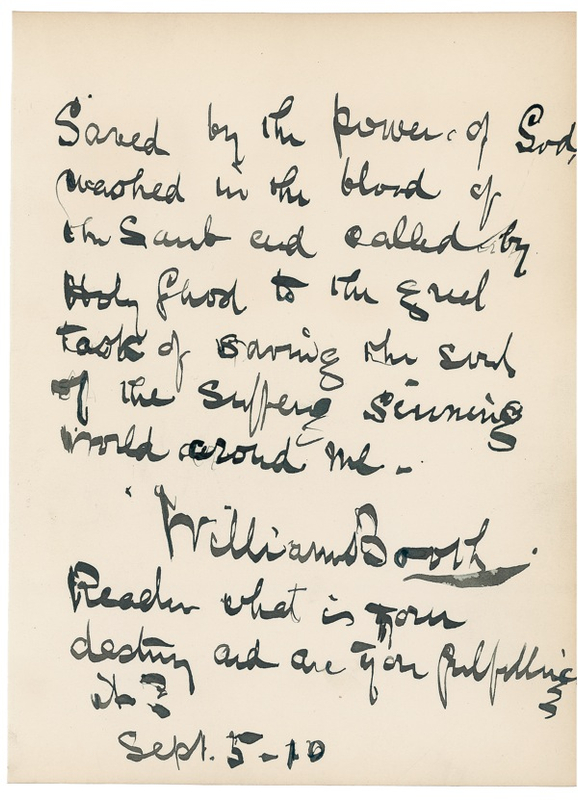 Saved by the power of God,
washed in the blood of
the Lamb and called by
Holy Ghost to the great
task of saving the souls
of the suffering sinning
world around me -
William Booth.
Reader what is your
destiny and are you fulfilling
it?
Sept. 5 - 10